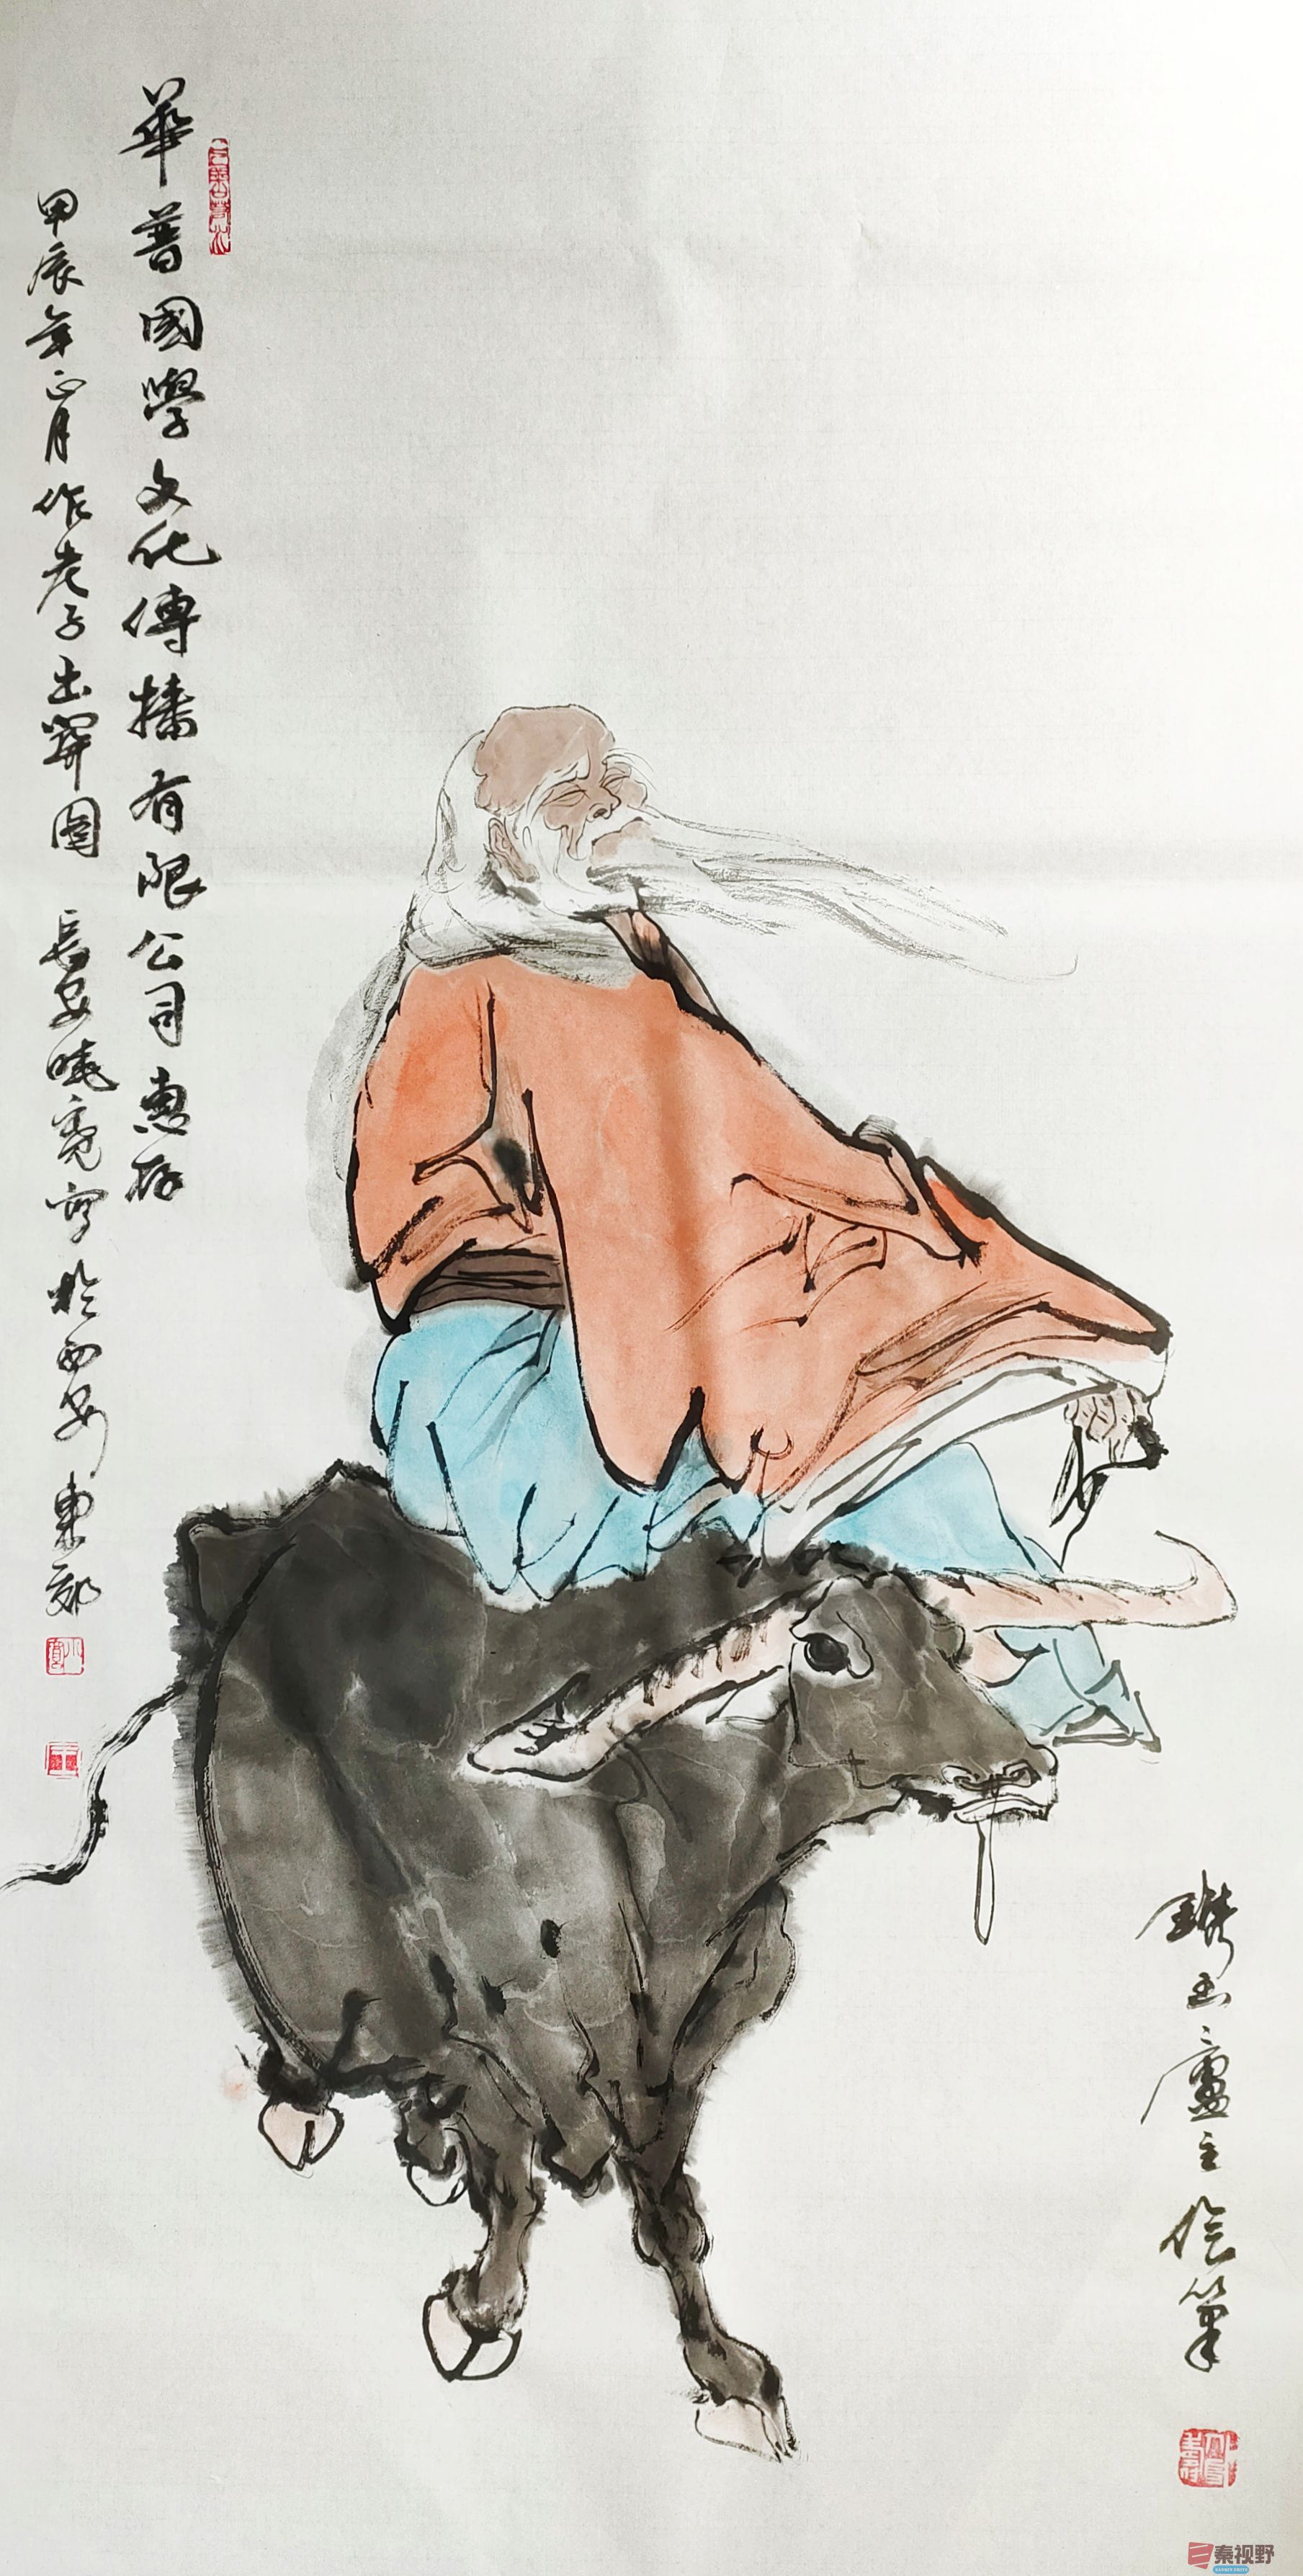 華普國學文化傳播有限公司惠存
甲辰年正月作老子出關圖 長安曉亮寫於西安東郊
山廬主人繪筆
秦视野